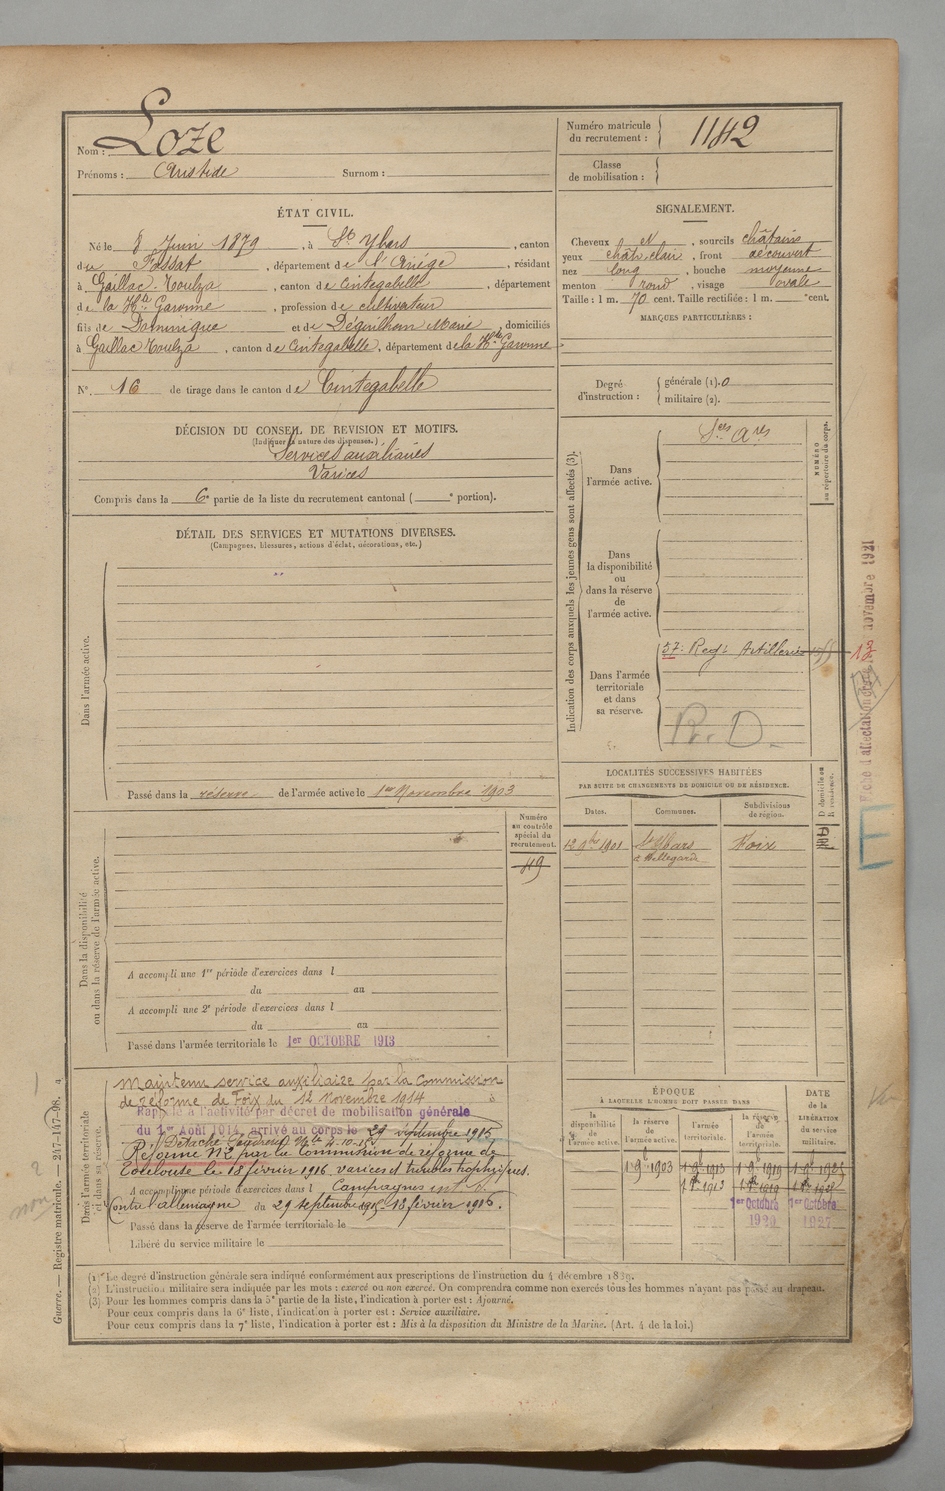 Nom : Loze
Prénoms : Aristide Surnom :
Numéro matricule du recrutement : 1142
Classe de mobilisation :
ÉTAT CIVIL.
Né le 8 Juin 1879, à St Ybars, canton
du Fossat, département de l'Ariège, résidant
à Gaillac-Toulza, canton de Cintegabelle, département
de la Hte Garonne, profession de cultivateur
fils de Dominique et de Déguilhem Marie, domiciliés
à Gaillac Toulza, canton de Cintegabelle, département de la Hte Garonne
N° 16 de tirage dans le canton de Cintegabelle
SIGNALEMENT.
Cheveux N, sourcils châtains
yeux chât. clair, front découvert
nez long, bouche moyenne
menton rond, visage ovale
Taille : 1 m. 70 cent. Taille rectifiée : 1 m. cent.
MARQUES PARTICULIÈRES :
Degré d'instruction : générale (1). 0
militaire (2).
DÉCISION DU CONSEIL DE REVISION ET MOTIFS.
(Indiquer la nature des dispenses.)
Services auxiliaires
Varices
Compris dans la 6e partie de la liste du recrutement cantonal ( e portion).
DÉTAIL DES SERVICES ET MUTATIONS DIVERSES.
(Campagnes, blessures, actions d'éclat, décorations, etc.)
Dans l'armée active.
Passé dans la réserve de l'armée active le 1er Novembre 1903
Indication des corps auxquels les jeunes gens sont affectés (3).
NUMÉRO au répertoire du corps.
Dans l'armée active.
Sces Ares
Dans la disponibilité ou dans la réserve de l'armée active.
Dans l'armée territoriale et dans sa réserve.
57e Regt Artillerie
R. D.
novembre 1921
LOCALITÉS SUCCESSIVES HABITÉES
PAR SUITE DE CHANGEMENTS DE DOMICILE OU DE RÉSIDENCE.
Dates. Communes. Subdivisions de région. D domicile ou R résidence.
12 9bre 1901 St Ybars Foix
Numéro au contrôle spécial du recrutement.
49
Dans la disponibilité ou dans la réserve de l'armée active.
A accompli une 1re période d'exercices dans l
du au
A accompli une 2e période d'exercices dans l
du au
Passé dans l'armée territoriale le 1er OCTOBRE 1913
Dans l'armée territoriale et dans sa réserve.
Maintenu service auxiliaire par la Commission
de réforme de Foix du 12 Novembre 1914
Rappelé à l'activité par décret de mobilisation générale
du 1er Août 1914, arrivé au corps le 29 septembre 1915
Réformé N°2 par la Commission de réforme de
Toulouse le 18 février 1916. varices et troubles trophiques.
A accompli une période d'exercices dans l Campagnes
Contre l'allemagne du 29 septembre 1915 18 février 1916.
Passé dans la réserve de l'armée territoriale le
Libéré du service militaire le
ÉPOQUE
À LAQUELLE L'HOMME DOIT PASSER DANS
la disponibilité de l'armée active. la réserve de l'armée active. l'armée territoriale. la réserve de l'armée territoriale. DATE de la LIBÉRATION du service militaire.
1 9b 1903 1 9b 1913 1 9b 1919
1er Octobre 1920 1er Octobre 1927
(1) Le degré d'instruction générale sera indiqué conformément aux prescriptions de l'instruction du 4 décembre 1889.
(2) L'instruction militaire sera indiquée par les mots : exercé ou non exercé. On comprendra comme non exercés tous les hommes n'ayant pas passé au drapeau.
(3) Pour les hommes compris dans la 5e partie de la liste, l'indication à porter est : Ajourné.
Pour ceux compris dans la 6e liste, l'indication à porter est : Service auxiliaire.
Pour ceux compris dans la 7e liste, l'indication à porter est : Mis à la disposition du Ministre de la Marine. (Art. 4 de la loi.)
Guerre. — Registre matricule. — 247-147-98.